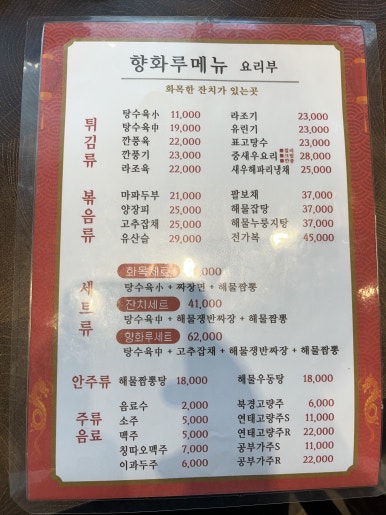 향화루메뉴 요리부
화목한 잔치가 있는곳
튀김류
탕수육小 11,000
탕수육中 19,000
깐풍육 22,000
깐풍기 23,000
라조육 22,000
라조기 23,000
유린기 23,000
표고탕수 23,000
중새우요리 28,000
새우해파리냉채 25,000
볶음류
마파두부 21,000
양장피 25,000
고추잡채 25,000
유산슬 29,000
팔보채 37,000
해물잡탕 37,000
해물누룽지탕 37,000
전가복 45,000
세트류
화목세트
탕수육小 + 짜장면 + 해물짬뽕
잔치세트 41,000
탕수육中 + 해물쟁반짜장 + 해물짬뽕
향화루세트 62,000
탕수육中 + 고추잡채 + 해물쟁반짜장 + 해물짬뽕
안주류
해물짬뽕탕 18,000
해물우동탕 18,000
주류
음료
음료수 2,000
소주 5,000
맥주 5,000
칭따오맥주 7,000
이과두주 6,000
북경고량주 6,000
연태고량주S 11,000
연태고량주R 22,000
공부가주S 11,000
공부가주R 22,000